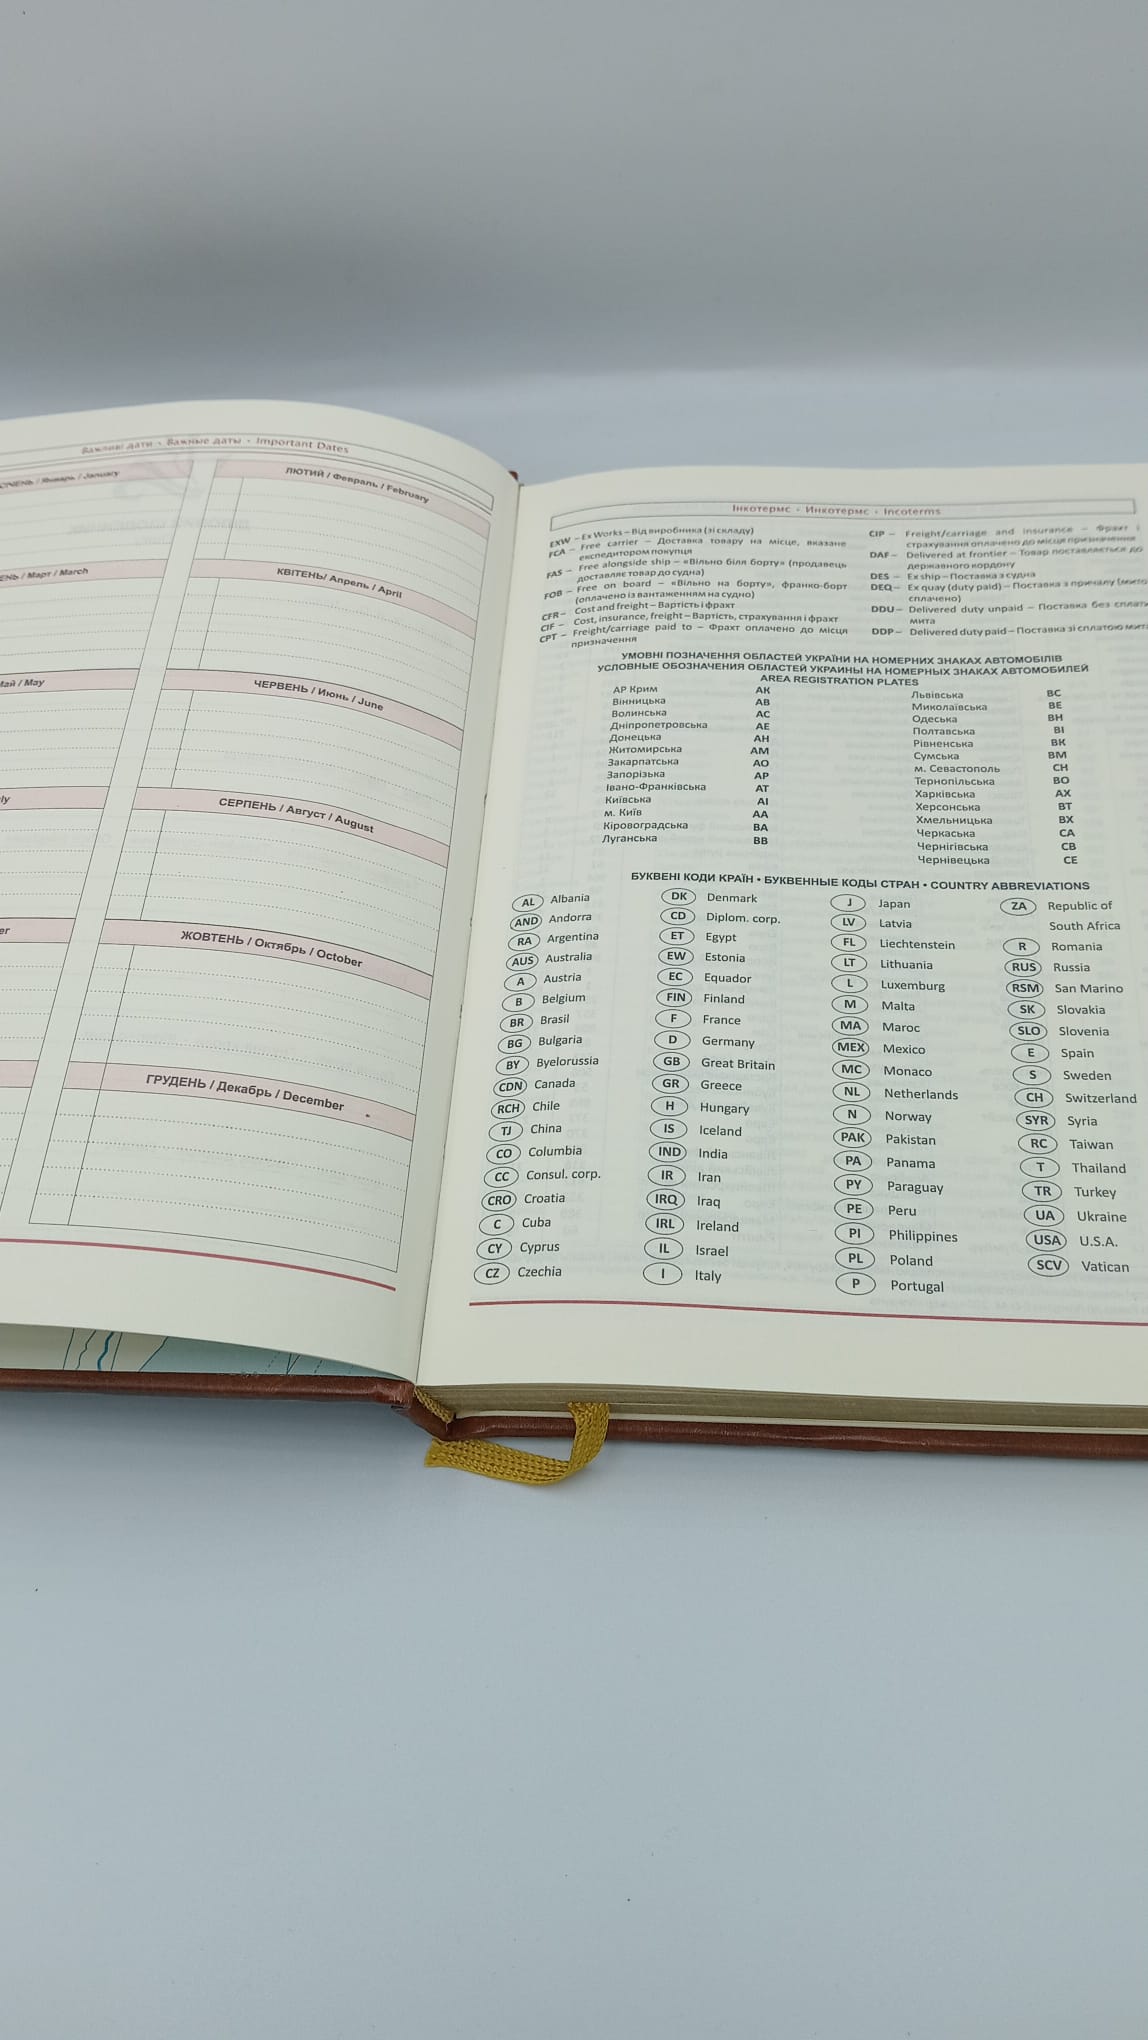 Важливі дати • Важные даты • Important Dates
СІЧЕНЬ / Январь / January
ЛЮТИЙ / Февраль / February
ЕНЬ / Март / March
КВІТЕНЬ/ Апрель / April
Май / May
ЧЕРВЕНЬ / Июнь / June
ly
СЕРПЕНЬ / Август / August
er
ЖОВТЕНЬ / Октябрь / October
ГРУДЕНЬ / Декабрь / December
Інкотермс • Инкотермс • Incoterms
EXW – Ex Works – Від виробника (зі складу)
FCA – Free carrier – Доставка товару на місце, вказане
експедитором покупця
FAS – Free alongside ship – «Вільно біля борту» (продавець
доставляє товар до судна)
FOB – Free on board – «Вільно на борту», франко-борт
(оплачено із вантаженням на судно)
CFR – Cost and freight – Вартість і фрахт
CIF – Cost, insurance, freight – Вартість, страхування і фрахт
CPT – Freight/carriage paid to – Фрахт оплачено до місця
призначення
CIP – Freight/carriage and insurance – Фрахт і
страхування оплачено до місця призначення
DAF – Delivered at frontier – Товар поставляється до
державного кордону
DES – Ex ship – Поставка з судна
DEQ – Ex quay (duty paid) – Поставка з причалу (мито
сплачено)
DDU – Delivered duty unpaid – Поставка без сплати
мита
DDP – Delivered duty paid – Поставка зі сплатою мита
УМОВНІ ПОЗНАЧЕННЯ ОБЛАСТЕЙ УКРАЇНИ НА НОМЕРНИХ ЗНАКАХ АВТОМОБІЛІВ
УСЛОВНЫЕ ОБОЗНАЧЕНИЯ ОБЛАСТЕЙ УКРАИНЫ НА НОМЕРНЫХ ЗНАКАХ АВТОМОБИЛЕЙ
AREA REGISTRATION PLATES
АР Крим АК
Вінницька АВ
Волинська АС
Дніпропетровська АЕ
Донецька АН
Житомирська АМ
Закарпатська АО
Запорізька АР
Івано-Франківська АТ
Київська АІ
м. Київ АА
Кіровоградська ВА
Луганська ВВ
Львівська ВС
Миколаївська ВЕ
Одеська ВН
Полтавська ВІ
Рівненська ВК
Сумська ВМ
м. Севастополь СН
Тернопільська ВО
Харківська АХ
Херсонська ВТ
Хмельницька ВХ
Черкаська СА
Чернігівська СВ
Чернівецька СЕ
БУКВЕНІ КОДИ КРАЇН • БУКВЕННЫЕ КОДЫ СТРАН • COUNTRY ABBREVIATIONS
AL Albania
AND Andorra
RA Argentina
AUS Australia
A Austria
B Belgium
BR Brasil
BG Bulgaria
BY Byelorussia
CDN Canada
RCH Chile
TJ China
CO Columbia
CC Consul. corp.
CRO Croatia
C Cuba
CY Cyprus
CZ Czechia
DK Denmark
CD Diplom. corp.
ET Egypt
EW Estonia
EC Equador
FIN Finland
F France
D Germany
GB Great Britain
GR Greece
H Hungary
IS Iceland
IND India
IR Iran
IRQ Iraq
IRL Ireland
IL Israel
I Italy
J Japan
LV Latvia
FL Liechtenstein
LT Lithuania
L Luxemburg
M Malta
MA Maroc
MEX Mexico
MC Monaco
NL Netherlands
N Norway
PAK Pakistan
PA Panama
PY Paraguay
PE Peru
PI Philippines
PL Poland
P Portugal
ZA Republic of
South Africa
R Romania
RUS Russia
RSM San Marino
SK Slovakia
SLO Slovenia
E Spain
S Sweden
CH Switzerland
SYR Syria
RC Taiwan
T Thailand
TR Turkey
UA Ukraine
USA U.S.A.
SCV Vatican